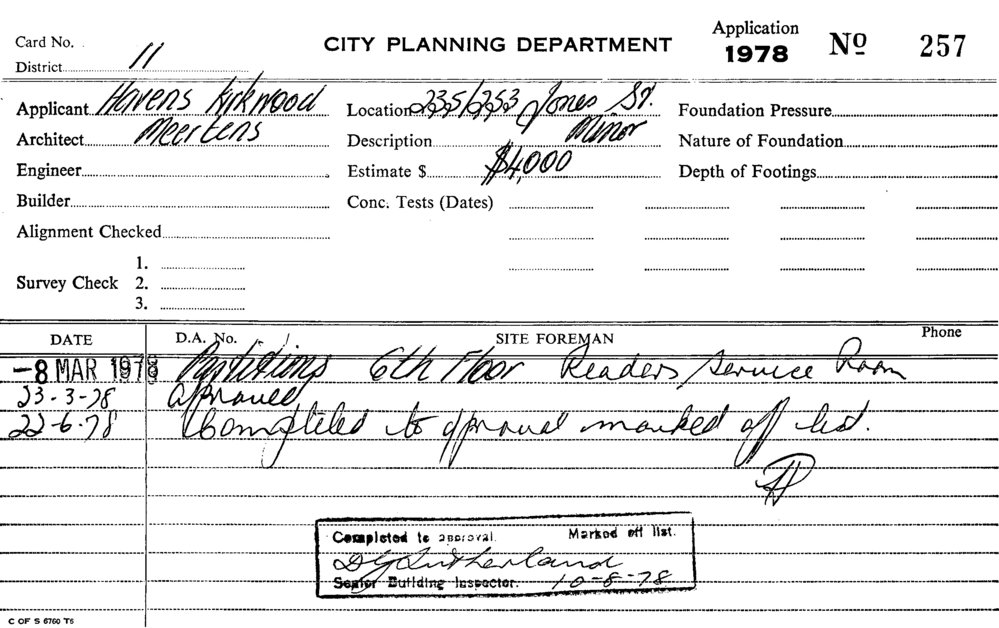 Card No.
District 11
CITY PLANNING DEPARTMENT
Application
1978
Nº 257
Applicant Havens Kirkwood
Architect Meertens
Engineer
Builder
Alignment Checked
Survey Check 1.
2.
3.
Location 235/253 Jones St.
Description Minor
Estimate $ $4,000
Conc. Tests (Dates)
Foundation Pressure
Nature of Foundation
Depth of Footings
DATE D.A. No. SITE FOREMAN Phone
-8 MAR 1978 Partitions 6th Floor Readers Service Room
23-3-78 Aproved
22-6-78 Completed to aproval marked off list.
Completed to approval. Marked off list.
D G Sutherland
Senior Building Inspector. 10-8-78
C OF S 6760 T5